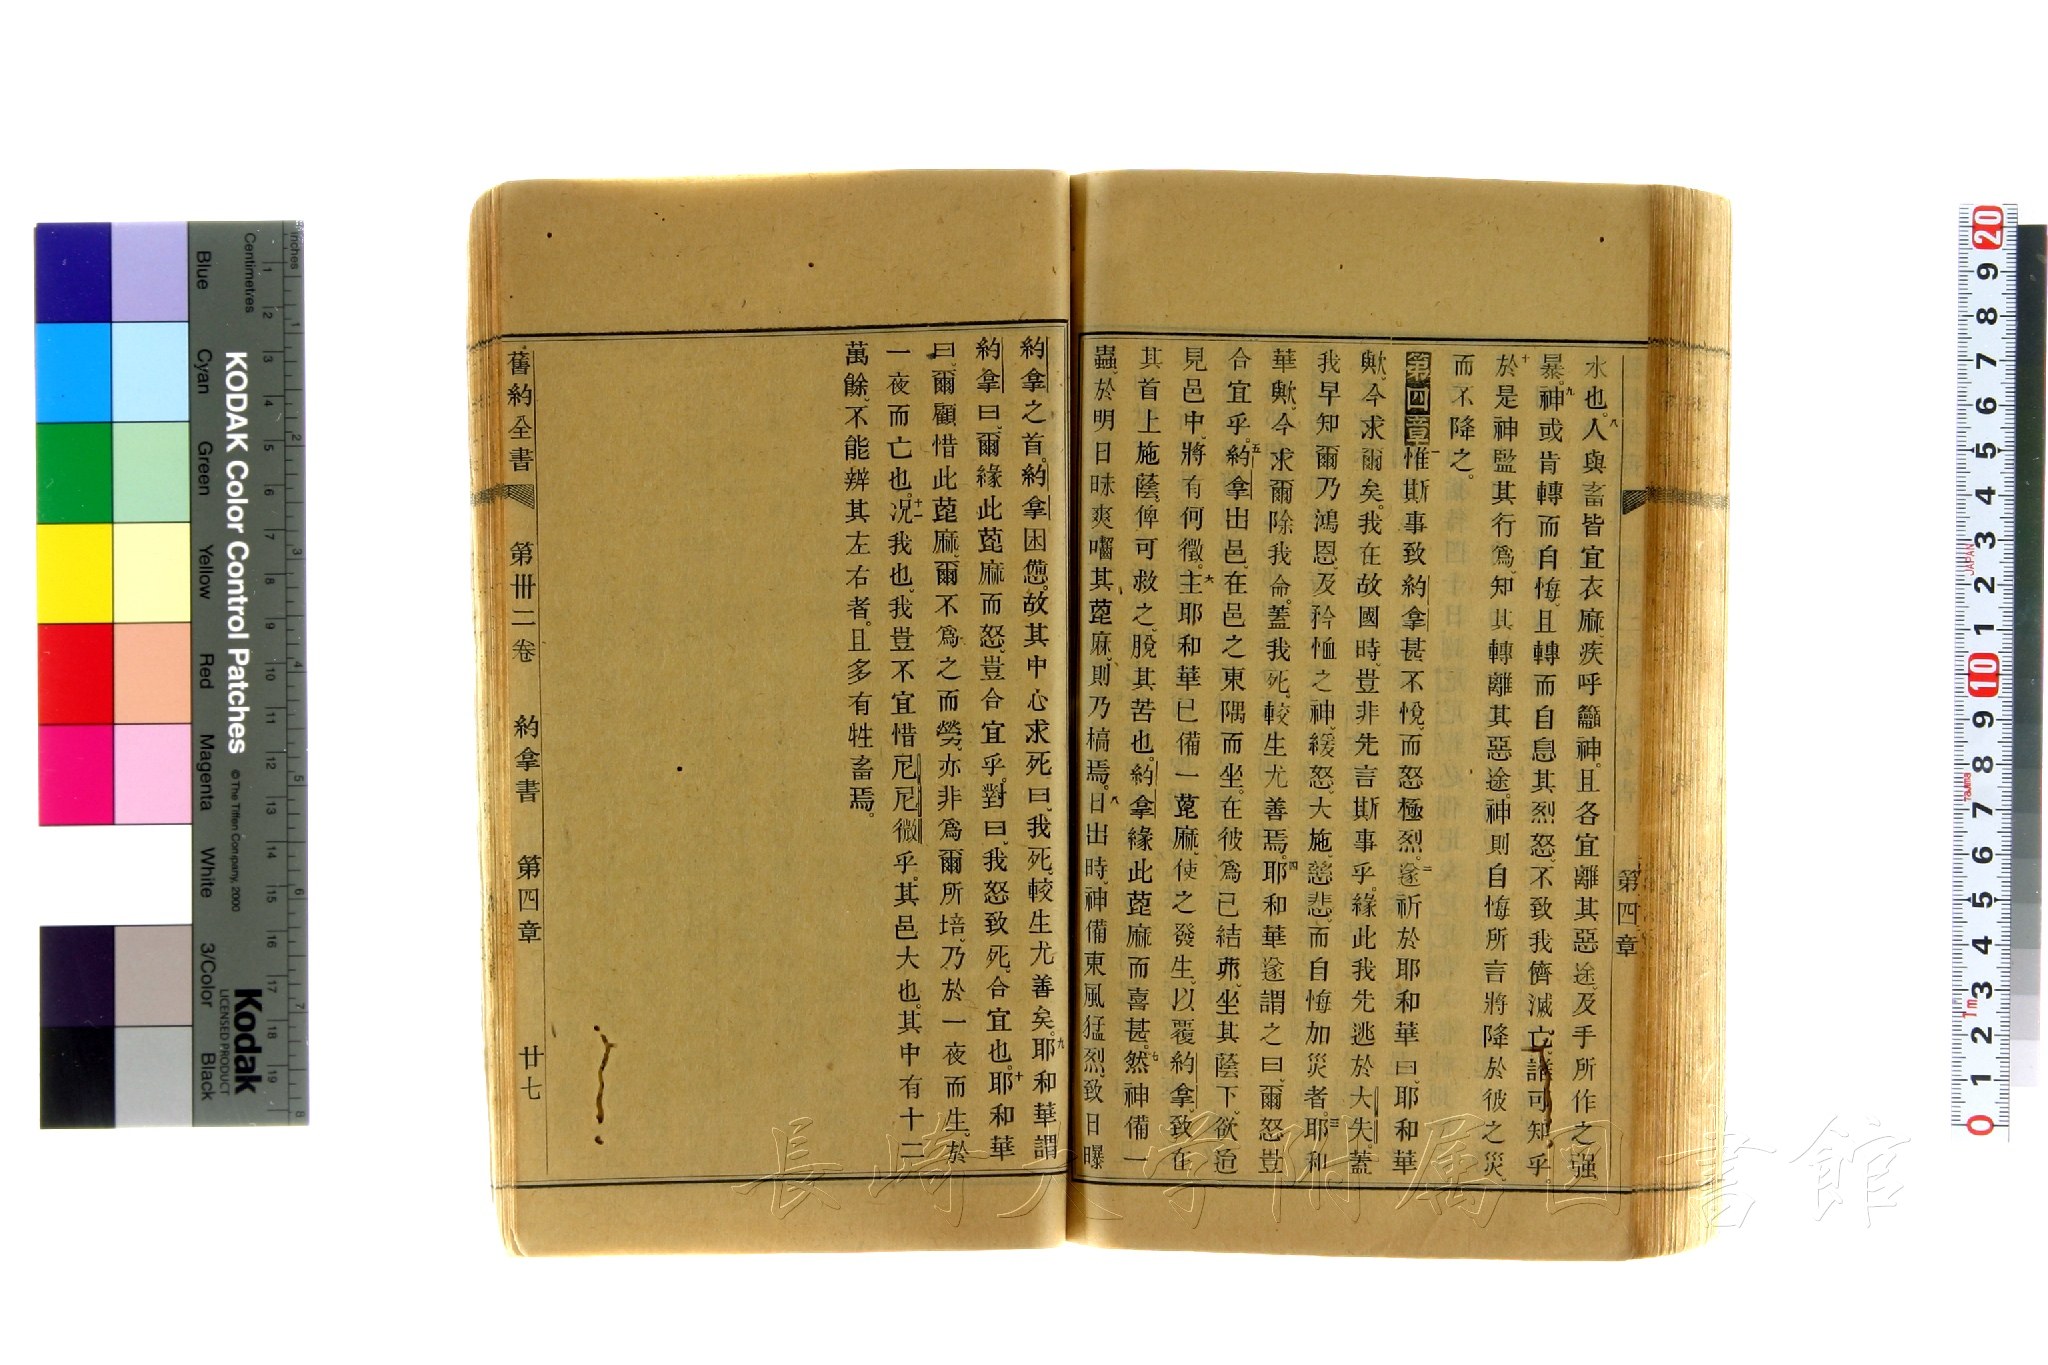 水也。八人與畜皆宜衣麻、疾呼籲神。且各宜離其惡途、及手所作之强
暴。九神或肯轉而自悔、且轉而自息其烈怒、不致我儕滅亡、誰可知乎。
十於是神監其行爲、知其轉離其惡途。神則自悔所言將降於彼之災、
而不降之。
第四章 一惟斯事致約拿甚不悅、而怒極烈。二遂祈於耶和華曰、耶和華
歟、今求爾矣。我在故國時、豈非先言斯事乎。緣此我先逃於大失。蓋
我早知爾乃鴻恩、及矜恤之神、緩怒、大施慈悲、而自悔加災者。三耶和
華歟、今求爾除我命。蓋我死、較生尤善焉。四耶和華遂謂之曰、爾怒豈
合宜乎。五約拿出邑、在邑之東隅而坐。在彼爲己結茆、坐其蔭下、欲迨
見邑中、將有何徵。六主耶和華已備一蓖麻、使之發生、以覆約拿、致在
其首上施蔭、俾可救之、脫其苦也。約拿緣此蓖麻而喜甚。七然神備一
蟲、於明日昧爽囓其蓖麻、則乃槁焉。八日出時、神備東風猛烈、致日曝
約拿之首。約拿困憊。故其中心求死曰、我死、較生尤善矣。九耶和華謂
約拿曰、爾緣此蓖麻而怒、豈合宜乎。對曰、我怒致死、合宜也。十耶和華
曰、爾顧惜此蓖麻、爾不爲之而勞、亦非爲爾所培、乃於一夜而生。於
一夜而亡也。十一况我也、我豈不宜惜尼尼微乎。其邑大也。其中有十二
萬餘、不能辨其左右者。且多有牲畜焉。
舊約全書 第卅二卷 約拿書 第四章 廿七
第四章
長崎大学附属図書館
KODAK Color Control Patches
©The Tiffen Company, 2000
Kodak
LICENSED PRODUCT
Inches
Centimetres
Blue
Cyan
Green
Yellow
Red
Magenta
White
3/Color
Black
JAPAN